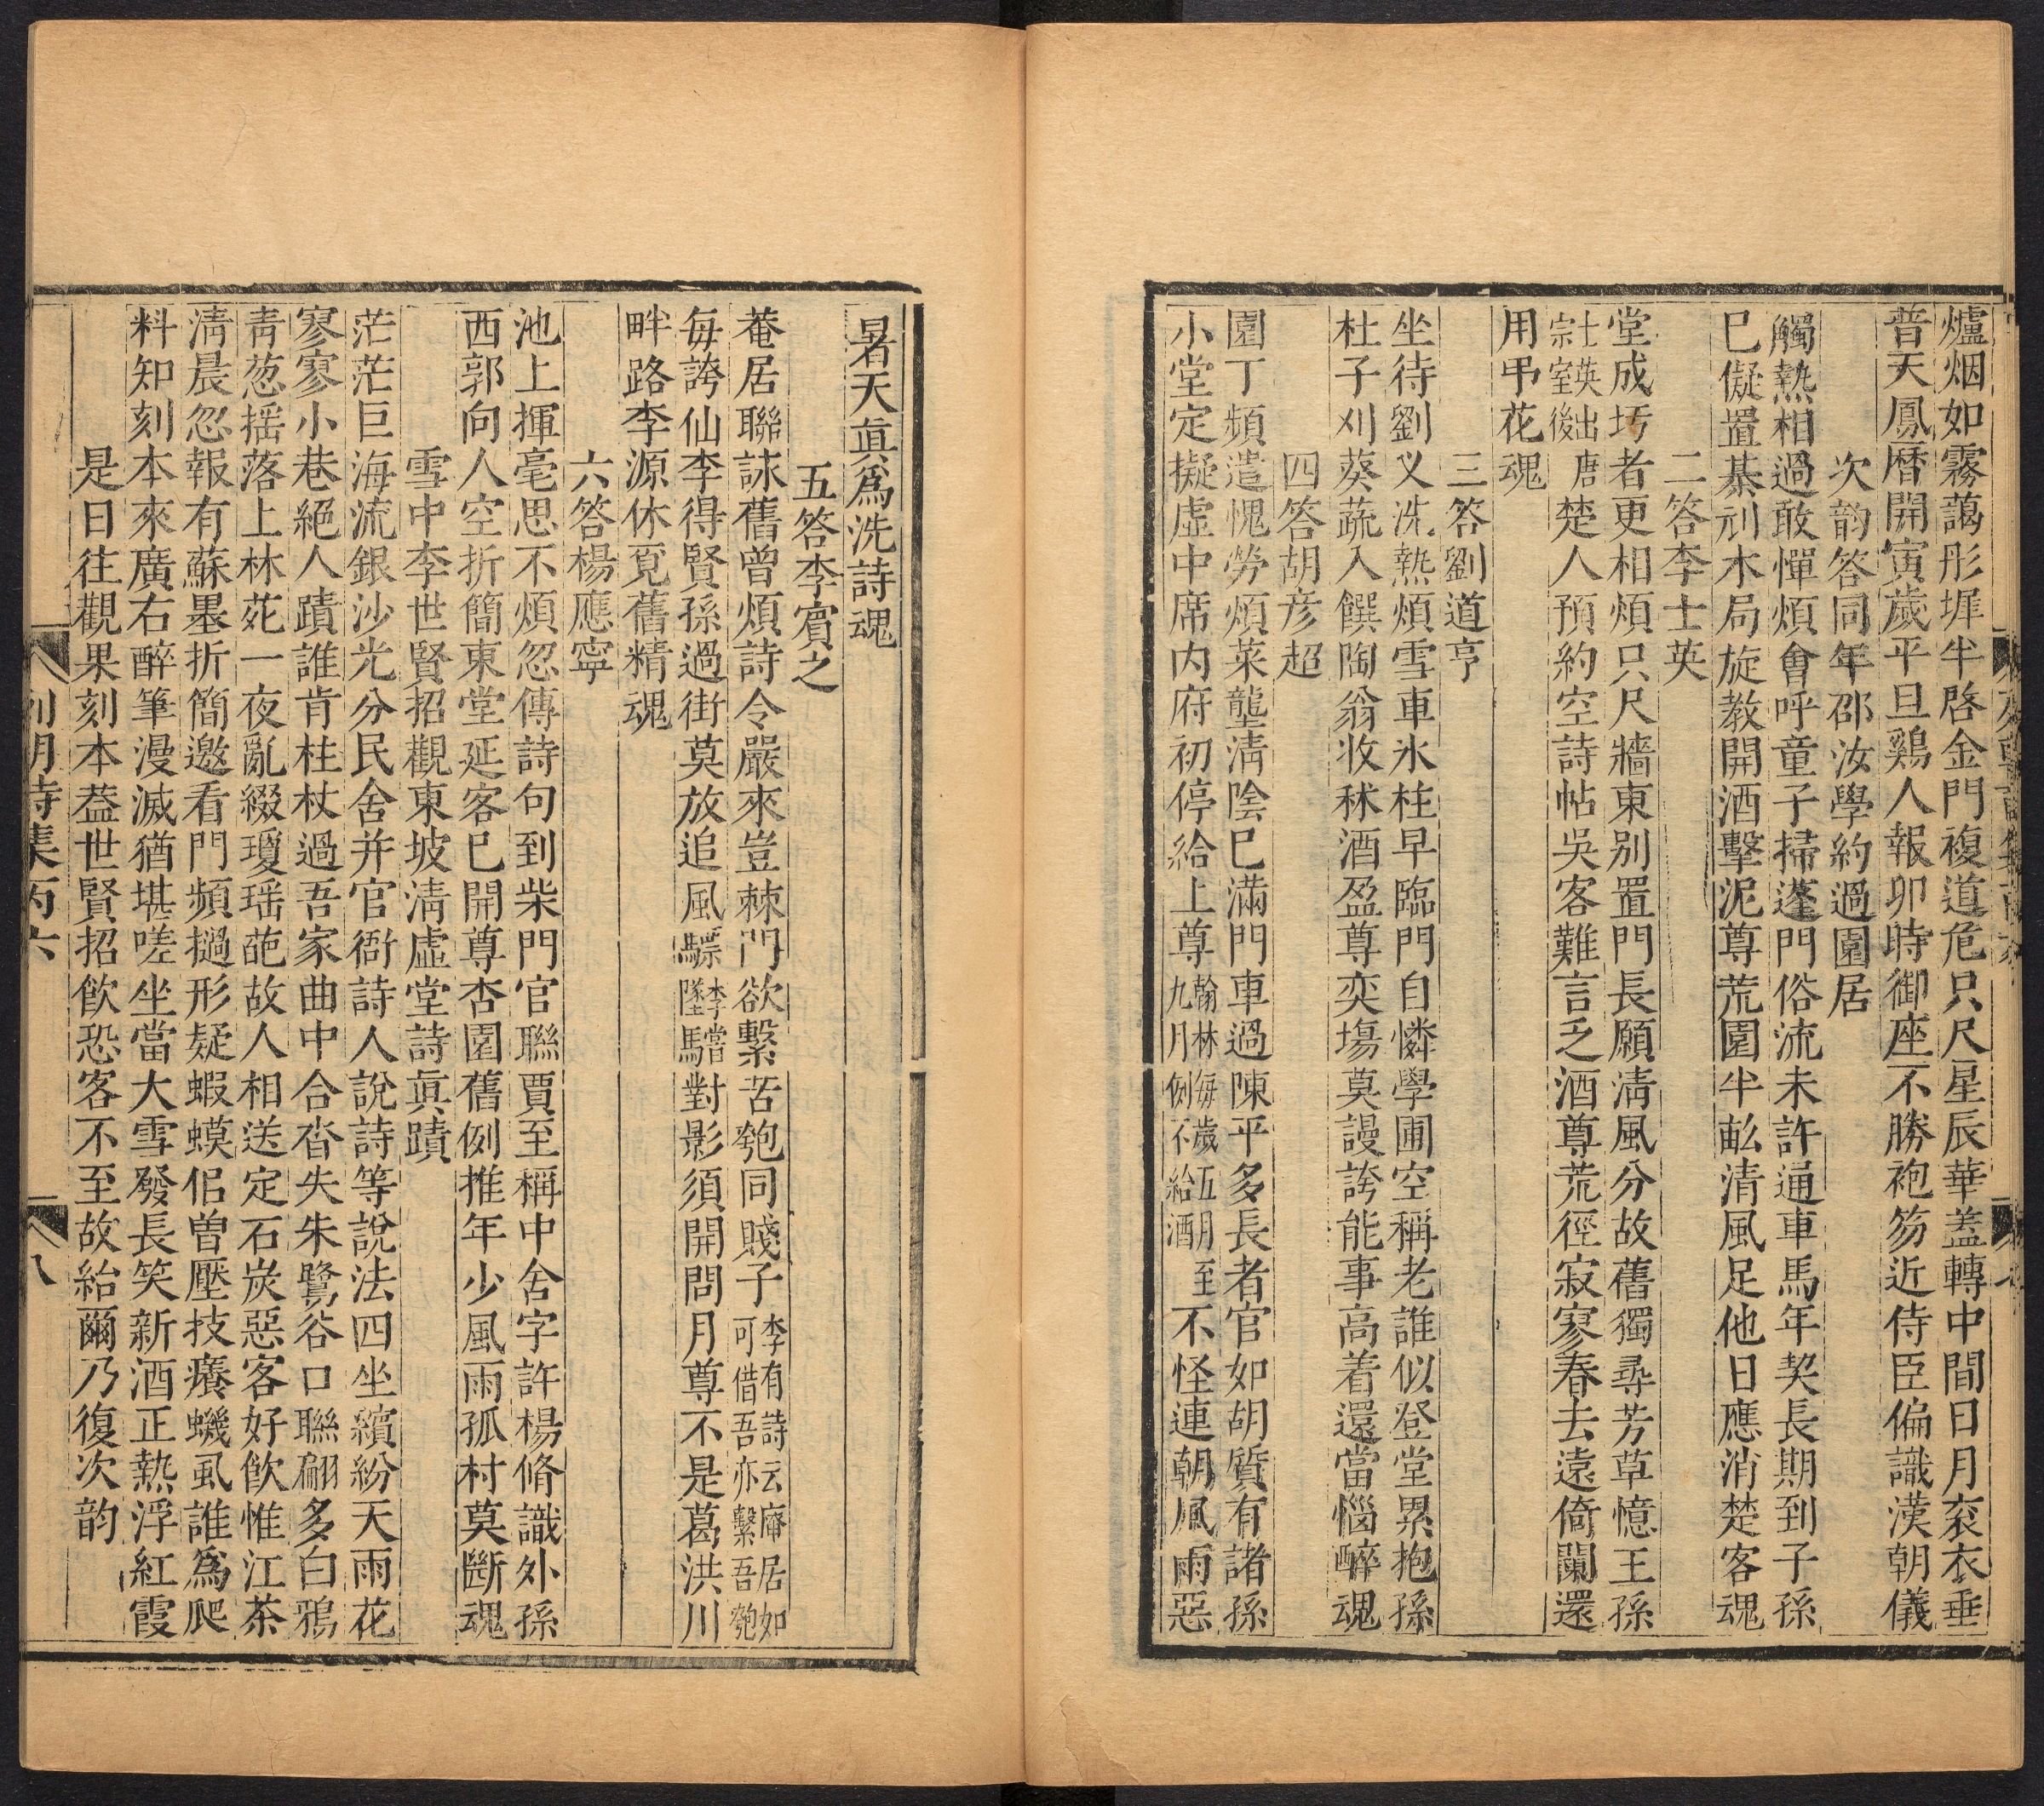 爐烟如霧藹彤墀半啓金門複道危只尺星辰華蓋轉中間日月衮衣垂
普天鳳曆開寅歲平旦鷄人報卯時御座不勝袍笏近侍臣偏識漢朝儀
次韵答同年邵汝學約過園居
觸熱相過敢憚煩會呼童子掃蓬門俗流未許通車馬年契長期到子孫
已儗置棊刓木局旋教開酒擊泥尊荒園半畝清風足他日應消楚客魂
二答李士英
堂成圬者更相煩只尺牆東别置門長願淸風分故舊獨尋芳草憶王孫
士英出唐
宗室後
楚人預約空詩帖吳客難言乏酒尊荒徑寂寥春去遠倚闌還
用弔花魂
三答劉道亨
坐待劉义洗熱煩雪車氷柱早臨門自憐學圃空稱老誰似登堂累抱孫
杜子刈葵蔬入饌陶翁收秫酒盈尊奕塲莫謾誇能事高着還當惱醉魂
四答胡彦超
園丁頻遣愧勞煩菜壟淸陰已滿門車過陳平多長者官如胡質有諸孫
小堂定擬虛中席内府初停給上尊
翰林每歲五月至
九月例不給酒
不怪連朝風雨惡
暑天眞爲洗詩魂
五答李賓之
菴居聯詠舊曾煩詩令嚴來豈棘門欲繫苦匏同賤子
李有詩云庵居如
可借吾亦繫吾匏
每誇仙李得賢孫過街莫放追風驃
李嘗
墜馬
對影須開問月尊不是葛洪川
畔路李源休覔舊精魂
六答楊應寧
池上揮毫思不煩忽傳詩句到柴門官聯賈至稱中舍字許楊脩識外孫
西郭向人空折簡東堂延客已開尊杏園舊例推年少風雨孤村莫斷魂
雪中李世賢招觀東坡淸虛堂詩眞蹟
茫茫巨海流銀沙光分民舍并官衙詩人說詩等說法四坐繽紛天雨花
寥寥小巷絕人蹟誰肯柱杖過吾家曲中合沓失朱鷺谷口聯翩多白鴉
靑葱揺落上林苑一夜亂綴瓊瑶葩故人相送定石炭惡客好飮惟江茶
淸晨忽報有蘇墨折簡邀看門頻撾形疑蝦蟆侶曾壓技癢蟣虱誰爲爬
料知刻本來廣右醉筆漫滅猶堪嗟坐當大雪發長笑新酒正熱浮紅霞
是日往觀果刻本葢世賢招飮恐客不至故紿爾乃復次韵